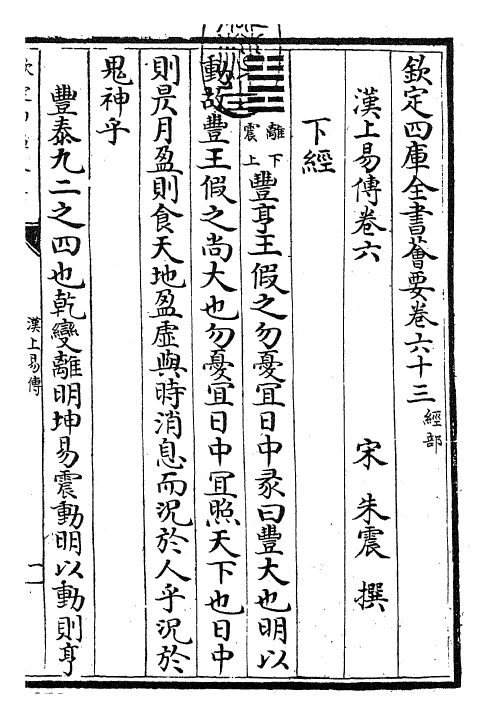 欽定四庫全書薈要卷六十三 經部
漢上易傳卷六 宋 朱震 撰
下經
䷶ 離下震上 豐亨王假之勿憂宜日中彖曰豐大也明以
動故豐王假之尚大也勿憂宜日中宜照天下也日中
則昃月盈則食天地盈虛與時消息而況於人乎況於
鬼神乎
豐泰九二之四也乾變離明坤易震動明以動則亨
漢上易傳
一